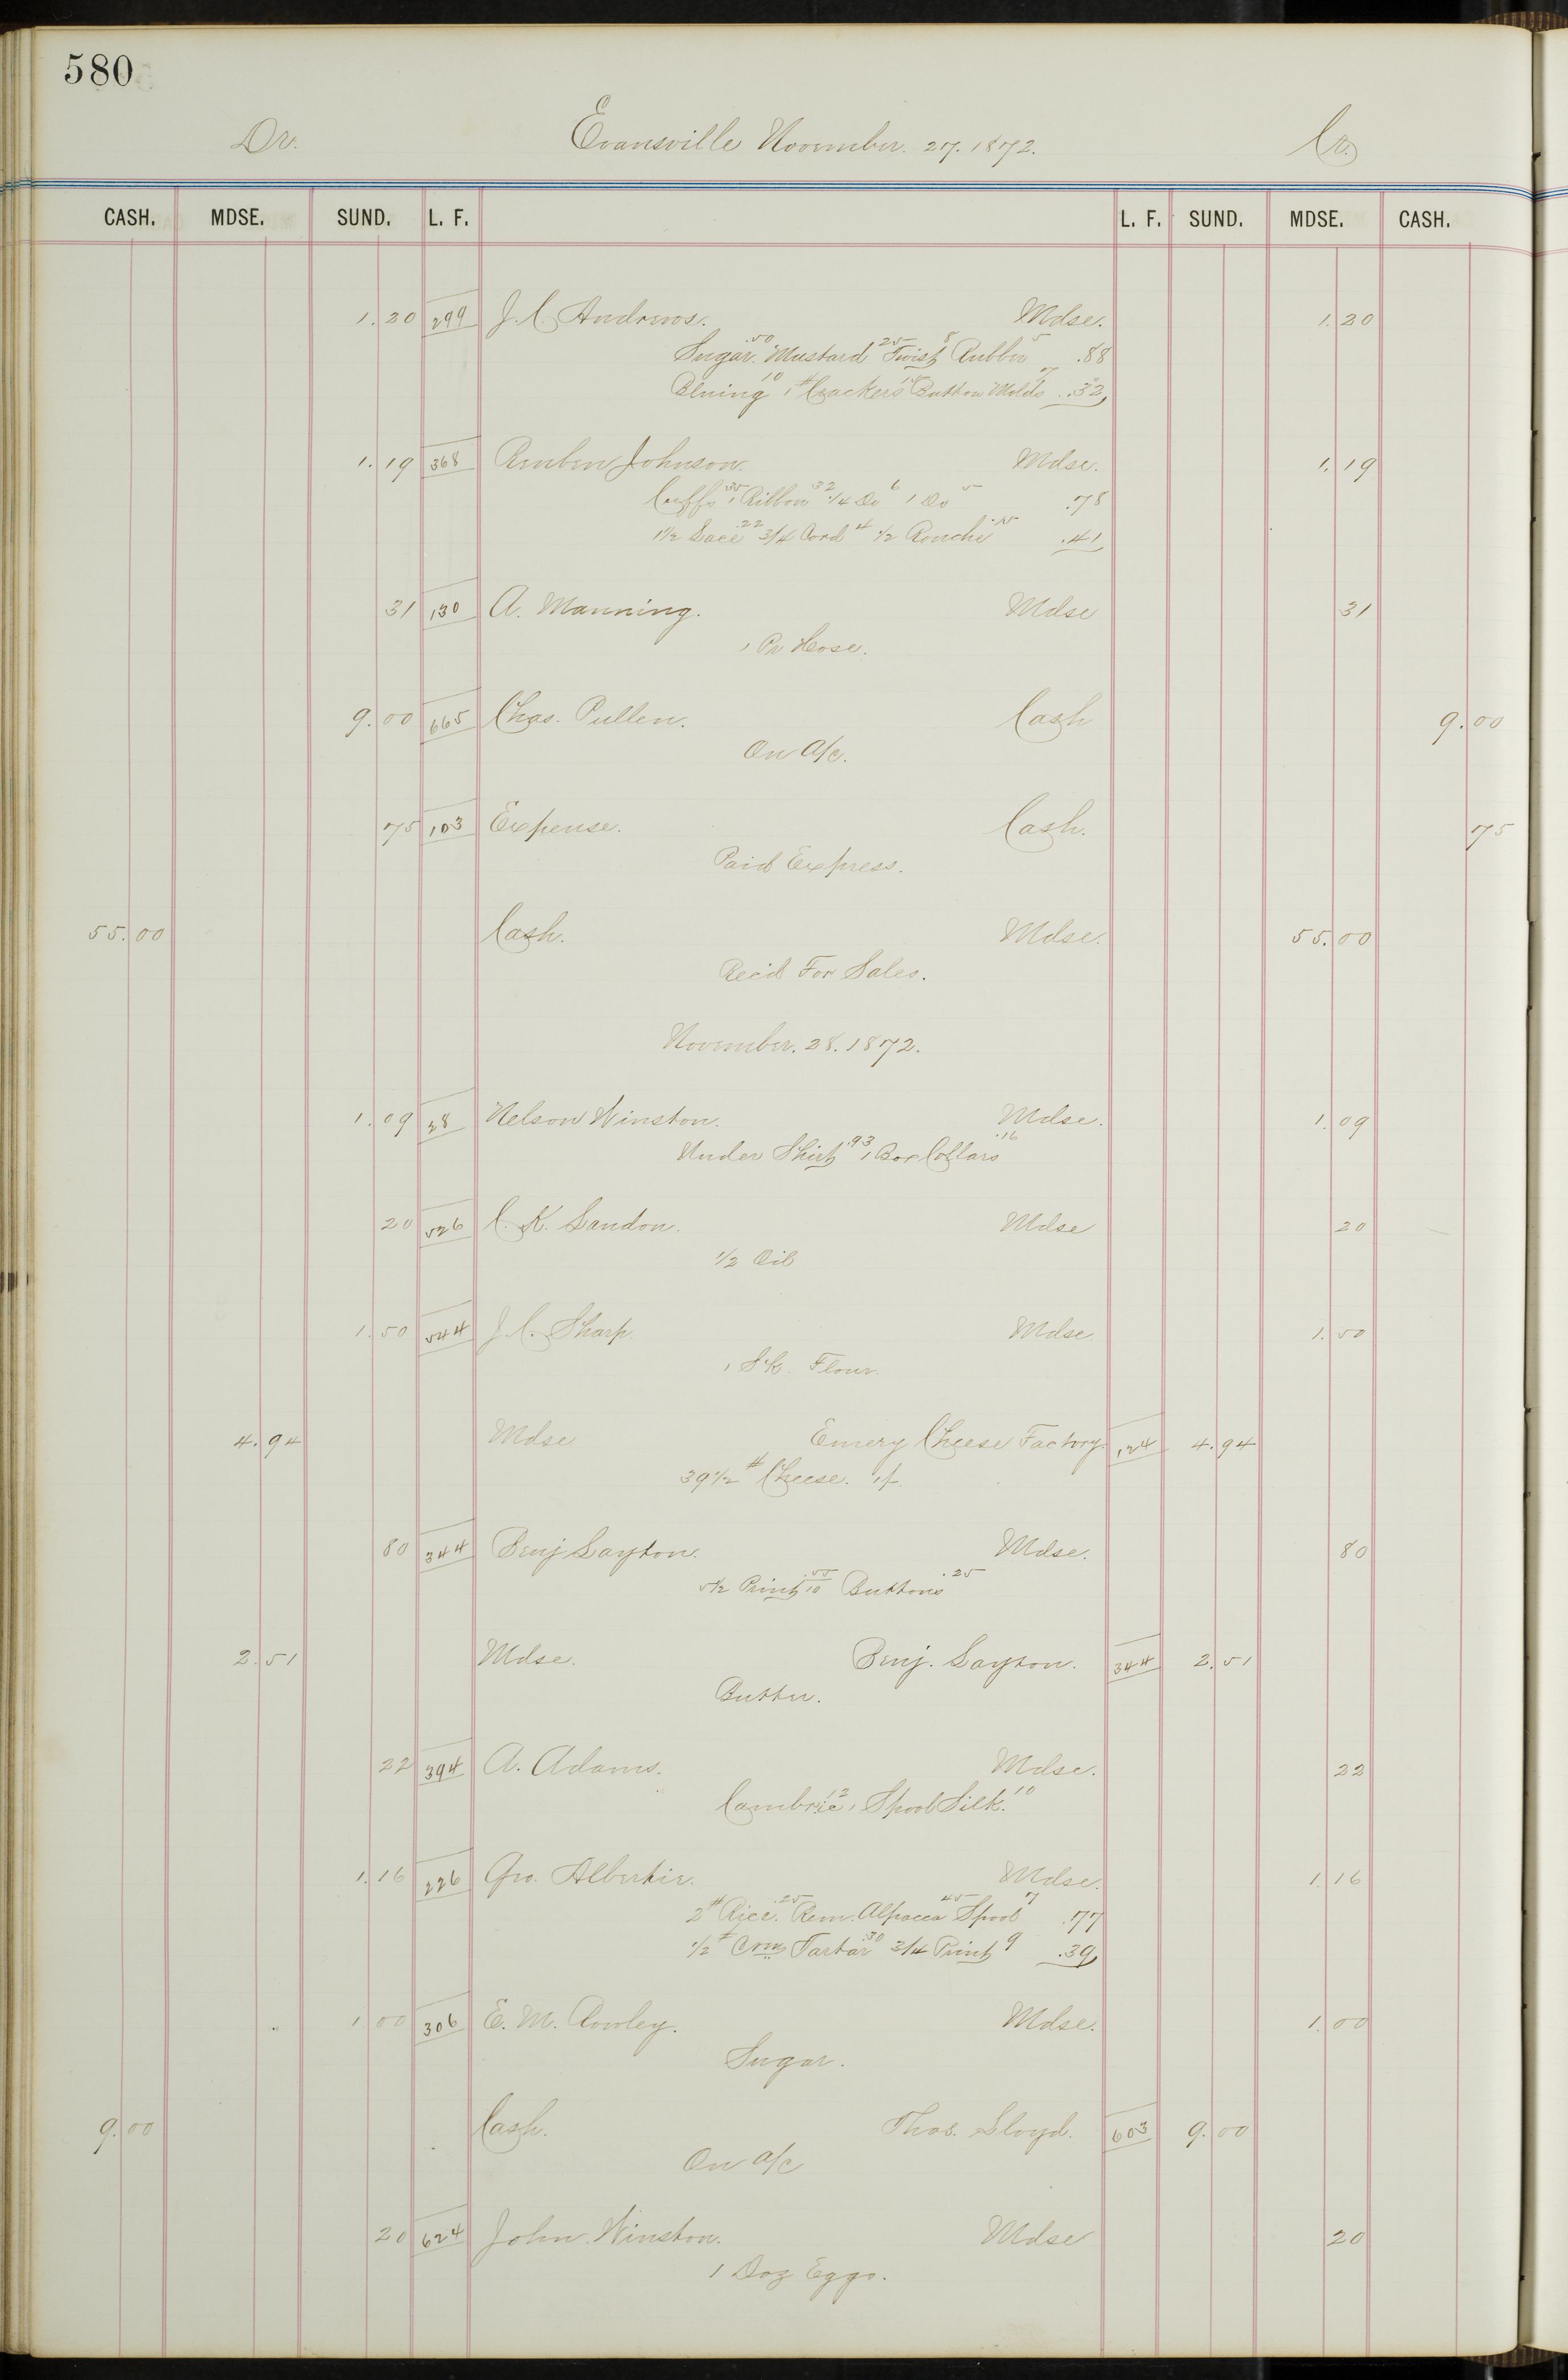 580
Dr. Evansville November. 27. 1872. Cr.
CASH. MDSE. SUND. L. F. L. F. SUND. MDSE. CASH.
1.20 299 J. C. Andrews. Mdse. 1.20
Sugar .50 Mustard 25 Twist 8 Rubber 5 .88
Bluing 10 1# Crackers 15 Button Molds 7 .32
1.19 368 Reuben Johnson. Mdse. 1.19
Cuffs .35 1 Ribbon 32 1/4 Do 6 1 Do 5 .78
1 1/2 Lace .22 3/4 Cord 4 1/2 Rouche .15 .41
31 130 A. Manning. Mdse 31
1 Pr Hose.
9.00 665 Chas. Pullen. Cash 9.00
On a/c.
75 103 Expense. Cash. 75
Paid Express.
55.00 Cash. Mdse. 55.00
Rec'd For Sales.
November. 28. 1872.
1.09 28 Nelson Winston. Mdse. 1.09
Under Shirt .93 1 Box Collars .16
20 526 C. K. Landon. Mdse 20
1/2 Oil
1.50 544 J. C. Sharp. Mdse 1.50
1 S'k. Flour.
4.94 Mdse Emery Cheese Factory. 124 4.94
39 1/2 # Cheese.
80 344 Benj Layton. Mdse. 80
5 1/2 Print .55 10 Buttons .25
2.51 Mdse. Benj. Layton. 344 2.51
Butter.
22 394 A. Adams. Mdse. 22
Cambric 12 1 Spool Silk. 10
1.16 226 Geo. Mdse. 1.16
2# Rice. .25 Rem. Alpacca 45 Spool 7 .77
1/2 # Crm Tartar .30 3/4 Print 9 .39
1 00 306 E. M. Mdse. 1.00
Sugar.
9.00 Cash. Thos. Lloyd. 603 9.00
On a/c
20 624 John. Winston. Mdse 20
1 Doz Eggs.